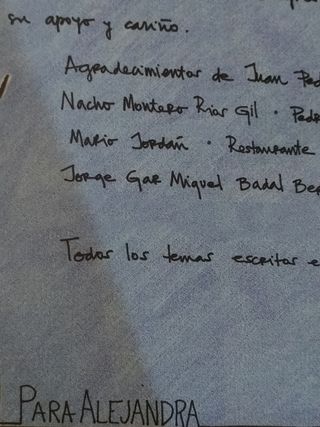 su apoyo y cariño.
Agradecimientos de Juan Ped
Nacho Montero Rios Gil · Pedr
Mario Jordán · Restaurante
Jorge Gar Miguel Badal Be
Todos los temas escritos e
PARA ALEJANDRA